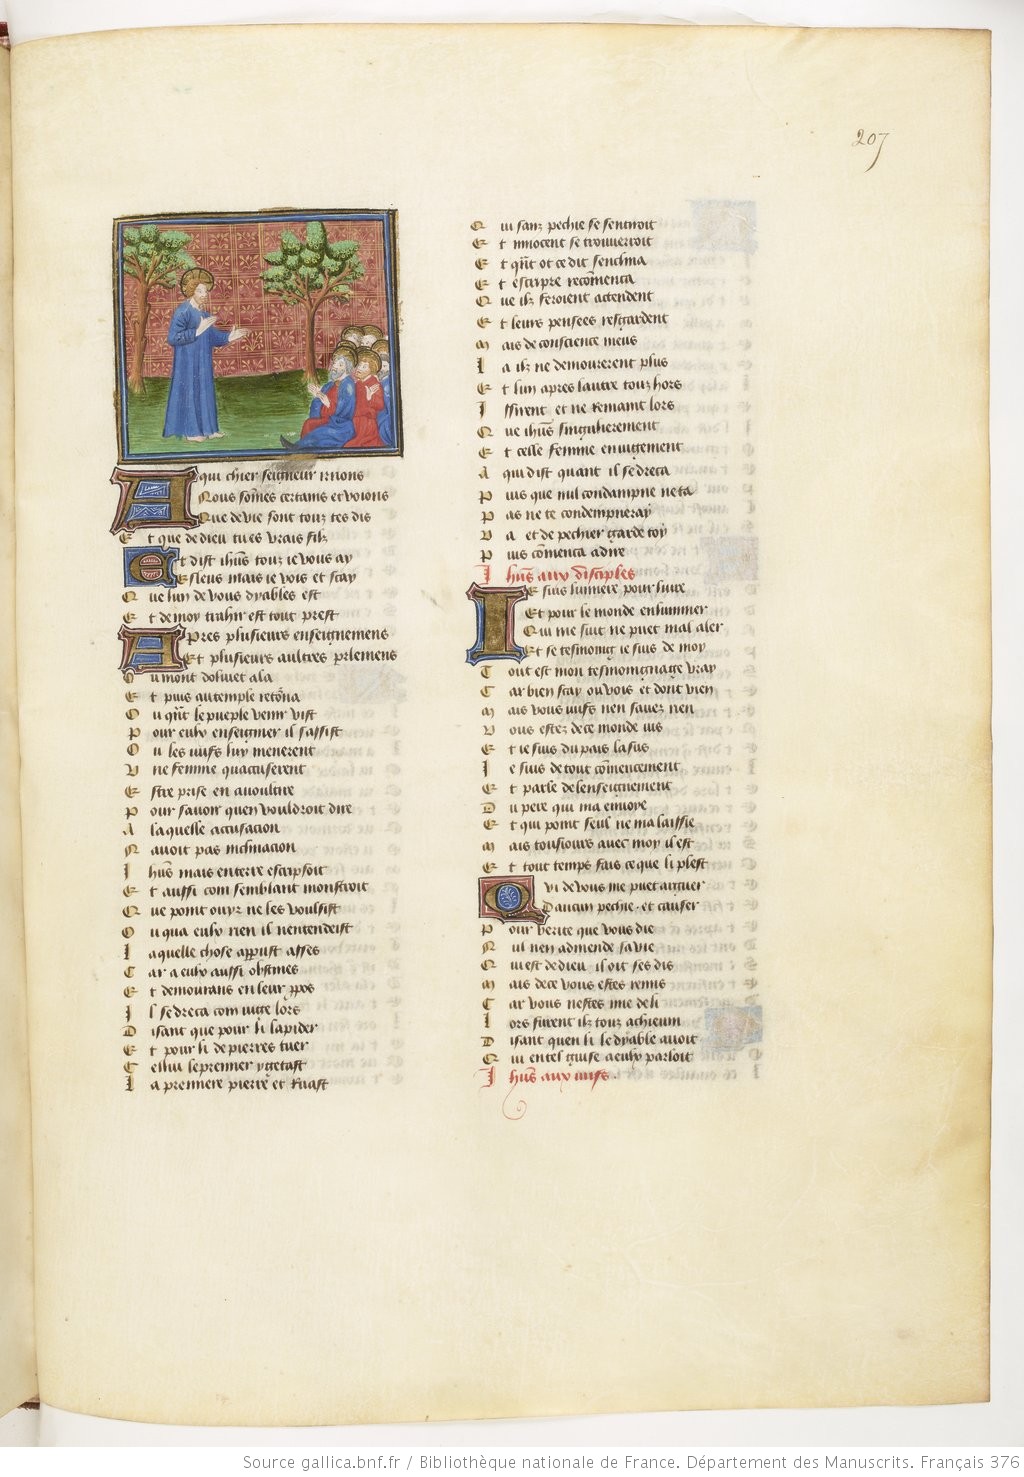 207
A qui chier seigneur irions
Nous so͞mes certains et voions
Que de vie sont touz tes dis
Et que de dieu tu es vrais filz
Et dist ih͞us touz ie vous ay
Esleus mais ie vois et scay
Que lun de vous dyables est
Et de moy trahir est tout prest
Apres plusieurs enseignemens
Et plusieurs aultres p̲lemens
Ou mont dolivet ala
Et puis au temple reto͞na
Ou q͞nt le pueple venir vist
Pour eulx enseigner il sassist
Ou les iuifs luy menerent
Vne femme quaccuserent
Estre prise en avoultire
Pour savoir quen vouldroit dire
A laquelle accusacion
Navoit pas inclinacion
Ih͞us mais en terre escripsoit
Et aussi com semblant monstroit
Que point ouyr ne les voulsist
Ou qua eulx rien il nentendeist
Laquelle chose apparust asses
Car a eulx aussi obstines
Et demourans en leur p̲pos
Il se dreca com iuge lors
Disant que pour li lapider
Et pour li de pierres tuer
Cellui le premier y getast
La premiere pierre et ruast
Qui sanz pechie se sentiroit
Et innocent se trouverroit
Et q͞nt ot ce dit senclina
Et escripre reco͞menca
Que ilz feroient actendent
Et leurs pensees resgardent
Mais de conscience meus
La ilz ne demourerent plus
Et lun apres lautre touz hors
Issirent et ne remaint lors
Que ih͞us singulierement
Et celle femme en iugement
A qui dist quant il se dreca
Puis que nul condampne ne ta
Pas ne te condempneray
Va et de pechier garde toy
Puis co͞menca a dire
Ih͞us aux disciples
Ie suis lumiere pour luire
Et pour le monde enluminer
Qui me suit ne puet mal aler
Et se tesmoing ie suis de moy
Tout est mon tesmoingnage vray
Car bien scay ou vois et dont vien
Mais vous iuifs nen savez rien
Vous estez de ce monde ius
Et ie suis du pais lasus
Ie suis de tout co͞mencement
Et parle de lenseignement
Du pere qui ma envoye
Et qui point seul ne ma laissie
Mais tousiours avec moy il est
Et tout temps fais ce que li plest
Qui de vous me puet arguer
Daucun pechie et causer
Pour verite que vous die
Nul nen admende sa vie
Qui est de dieu il oit ses dis
Mais de ce vous estes remis
Car vous nestes mie de li
Lors furent ilz touz
Disant quen li le dyable avoit
Qui en tel guise a eulx parloit
Ih͞us aux iuifs.
Source gallica.bnf.fr / Bibliothèque nationale de France. Département des Manuscrits. Français 376